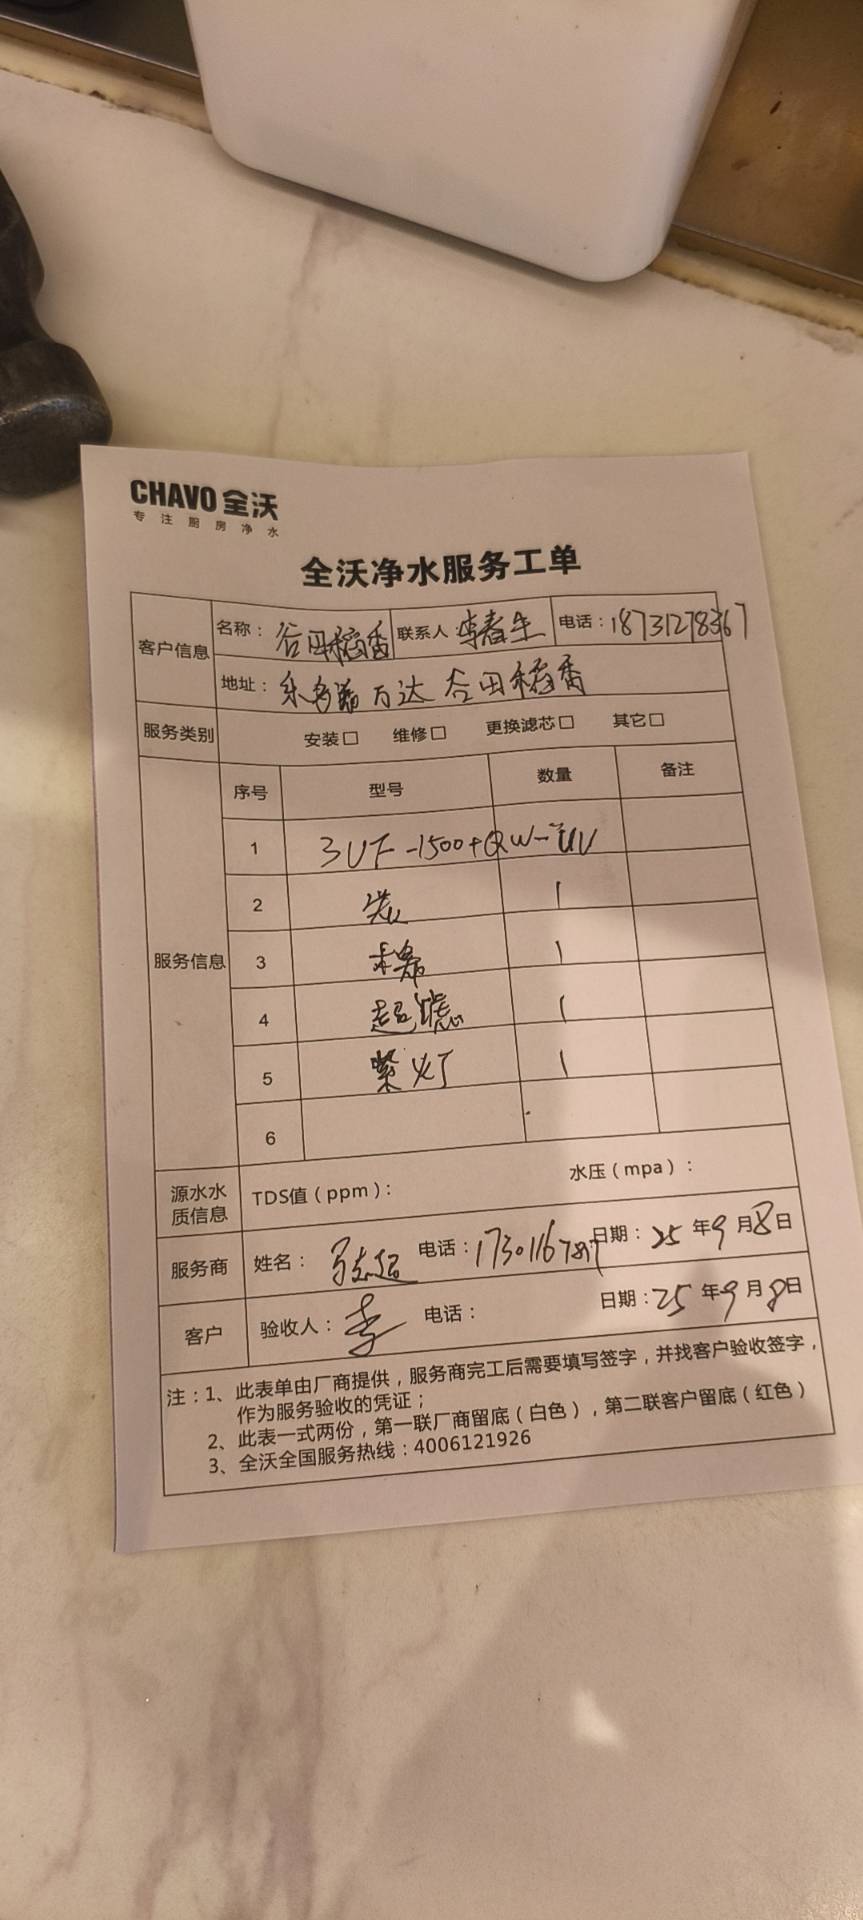 CHAVO 全沃
专注厨房净水
全沃净水服务工单
客户信息 名称：谷田稻香 联系人 李春生 电话：18731278367
地址： 万达 谷田稻香
服务类别 安装□ 维修□ 更换滤芯□ 其它□
服务信息 序号 型号 数量 备注
1 3UF-1500+QW-UV
2 炭 1
3 1
4 超滤 1
5 紫灯 1
6
源水水质信息 TDS值（ppm）： 水压（mpa）：
服务商 姓名： 电话： 日期：25年9月8日
客户 验收人：李 电话： 日期：25年9月8日
注：1、此表单由厂商提供，服务商完工后需要填写签字，并找客户验收签字，
作为服务验收的凭证；
2、此表一式两份，第一联厂商留底（白色），第二联客户留底（红色）
3、全沃全国服务热线：4006121926